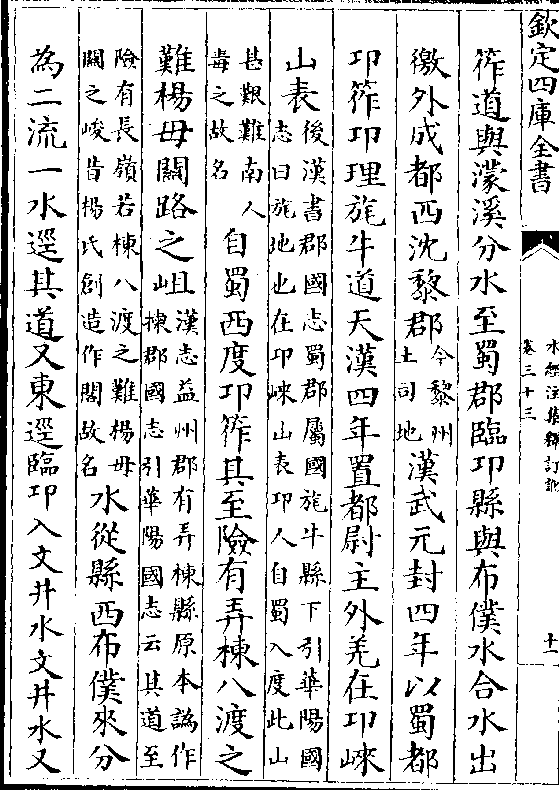 欽定四庫全書
水經注集釋訂訛
卷三十三
十一
筰道與濛溪分水至蜀郡臨卭縣與布僕水合水出
徼外成都西沈黎郡今黎州土司地漢武元封四年以蜀都
卭筰卭理旄牛道天漢四年置都尉主外羌在卭崍
山表後漢書郡國志蜀郡屬國旄牛縣下引華陽國志曰旄地也在卭崍山表卭人自蜀入度此山甚艱難南人毒之故名
自蜀西度卭筰其至險有弄棟八渡之
難楊母閣路之岨漢志益州郡有弄棟縣原本譌作揀郡國志引華陽國志云其道至險有長嶺若棟八渡之難楊母閣之峻昔楊氏創造作閣故名
水從縣西布僕來分
為二流一水逕其道又東逕臨卭入文井水文井水又